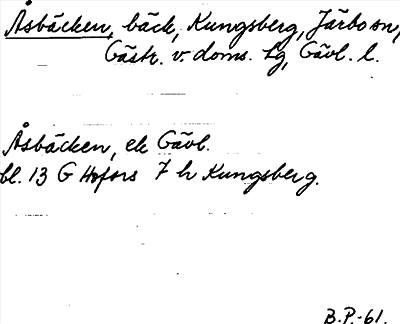 Åsbäcken, bäck, Kungsberg, Järbo sn,
Gästr. v. doms. lg, Gävl. l.
Åsbäcken, ek Gävl.
bl. 13 G Hofors 7 h Kungsberg.
B.P.-61.